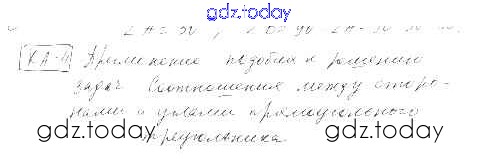 gdz.today
КА-4 Применение подобия к решению
задач Соотношения между сторо-
нами и углами прямоугольного
треугольника.
gdz.today gdz.today